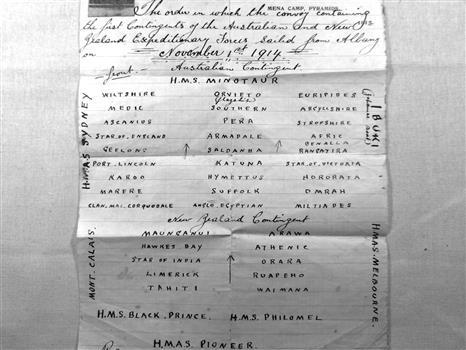 MENA CAMP, PYRAMIDS.
The order in which the convoy containing
the first Contingents of the Australian and New
Zealand Expeditionary Forces sailed from Albany
on November 1st 1914
Australian Contingent
H.M.S. MINOTAUR
WILTSHIRE ORVIETO EURIPIDES
(Flagship)
MEDIC SOUTHERN ARGYLLSHIRE
ASCANIUS PERA SHROPSHIRE
STAR OF ENGLAND ARMADALE AFRIC
BENALLA
GEELONG SALDANHA RANGATIRA
PORT. LINCOLN KATUNA STAR. OF. VICTORIA
KAROO HYMETTUS HORORATA
MARERE SUFFOLK OMRAH
CLAN. MAC. CORQUODALE ANGLO. EGYPTIAN MILTIADES
New Zealand Contingent
MAUNGANUI ARAWA
HAWKES BAY ATHENIC
STAR OF INDIA ORARA
LIMERICK RUAPEHO
TAHITI WAIMANA
H.M.S. BLACK. PRINCE. H.M.S. PHILOMEL
H.M.S. PIONEER.
HMAS SYDNEY
MONT. CALAIS.
IBUKI
HMAS. MELBOURNE.